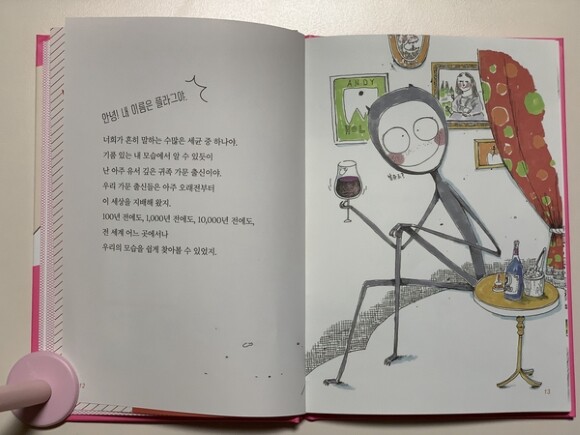 안녕! 내 이름은 플라그야.
너희가 흔히 말하는 수많은 세균 중 하나야.
기품 있는 내 모습에서 알 수 있듯이
난 아주 유서 깊은 귀족 가문 출신이야.
우리 가문 출신들은 아주 오래전부터
이 세상을 지배해 왔지.
100년 전에도, 1,000년 전에도, 10,000년 전에도,
전 세계 어느 곳에서나
우리의 모습을 쉽게 찾아볼 수 있었지.
12
ANDY
13